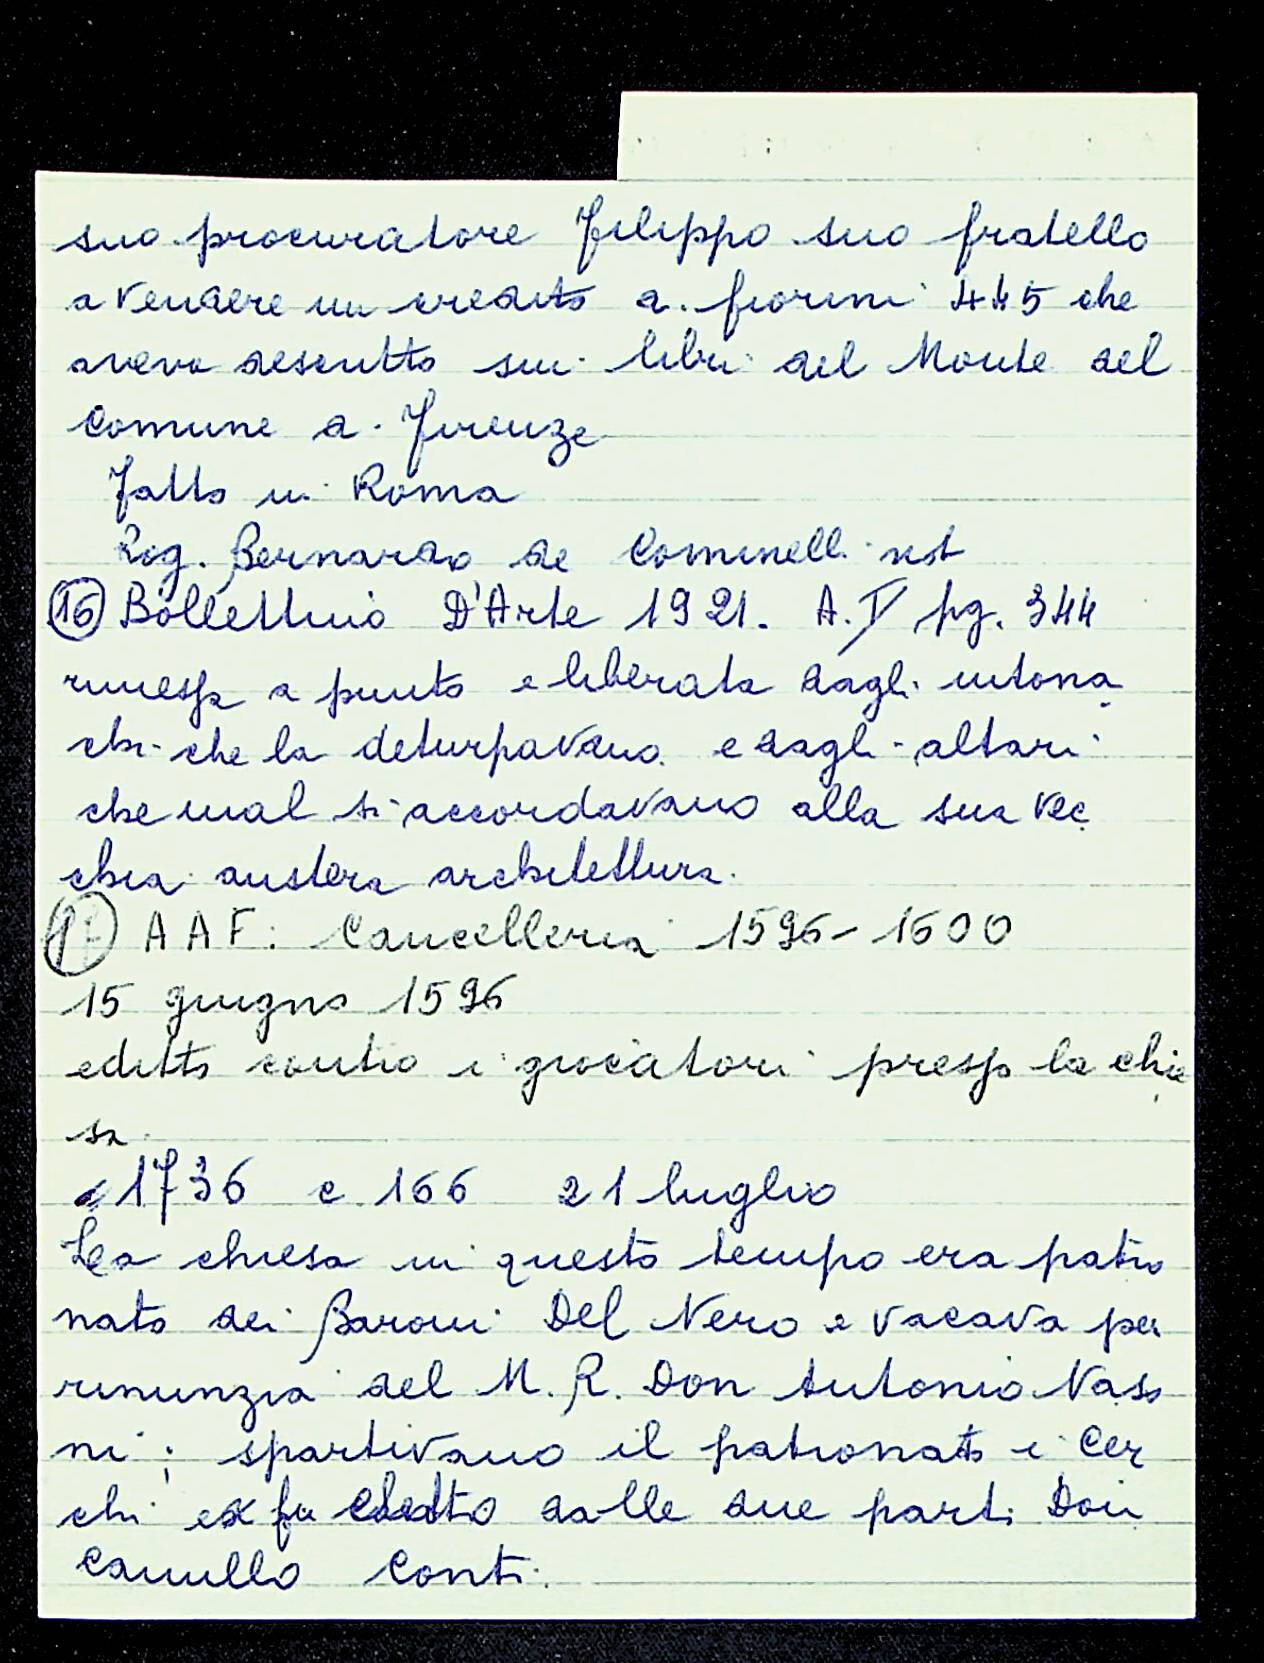 suo procuratore Filippo suo fratello
a vendere un credito di fiorini 445 che
aveva descritto sui libri del Monte del
Comune di Firenze
Fatto in Roma
Rog. Bernardo de Cominelli not
16 Bollettino D'Arte 1921. A.V pg. 344
rimessa a punto e liberata dagli intona
chi che la deturpavano e dagli altari
che mal si accordavano alla sua vec
chia austera architettura.
17 AAF: Cancelleria 1596-1600
15 giugno 1596
editto contro i giocatori presso la chie
sa
1736 c. 166 21 luglio
La chiesa in questo tempo era patro
nato dei Baroni Del Nero e vacava per
rinunzia del M. R. Don Antonio Vaso
ni; spartivano il patronato i Cer
chi ed fu eletto dalle due parti Don
Camillo Conti.